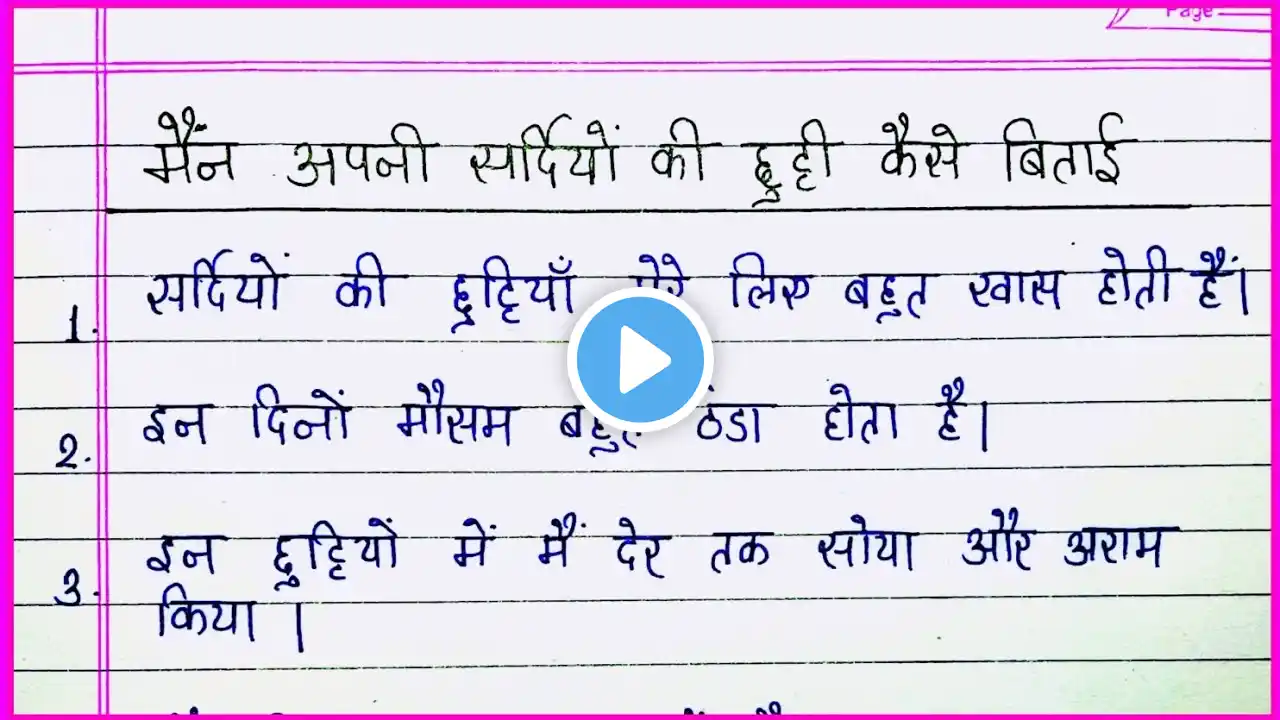 Page
मैंने अपनी सर्दियों की छुट्टी कैसे बिताई
1. सर्दियों की छुट्टियाँ मेरे लिए बहुत खास होती हैं।
2. इन दिनों मौसम बहुत ठंडा होता है।
3. इन छुट्टियों में मैं देर तक सोया और अराम
किया ।